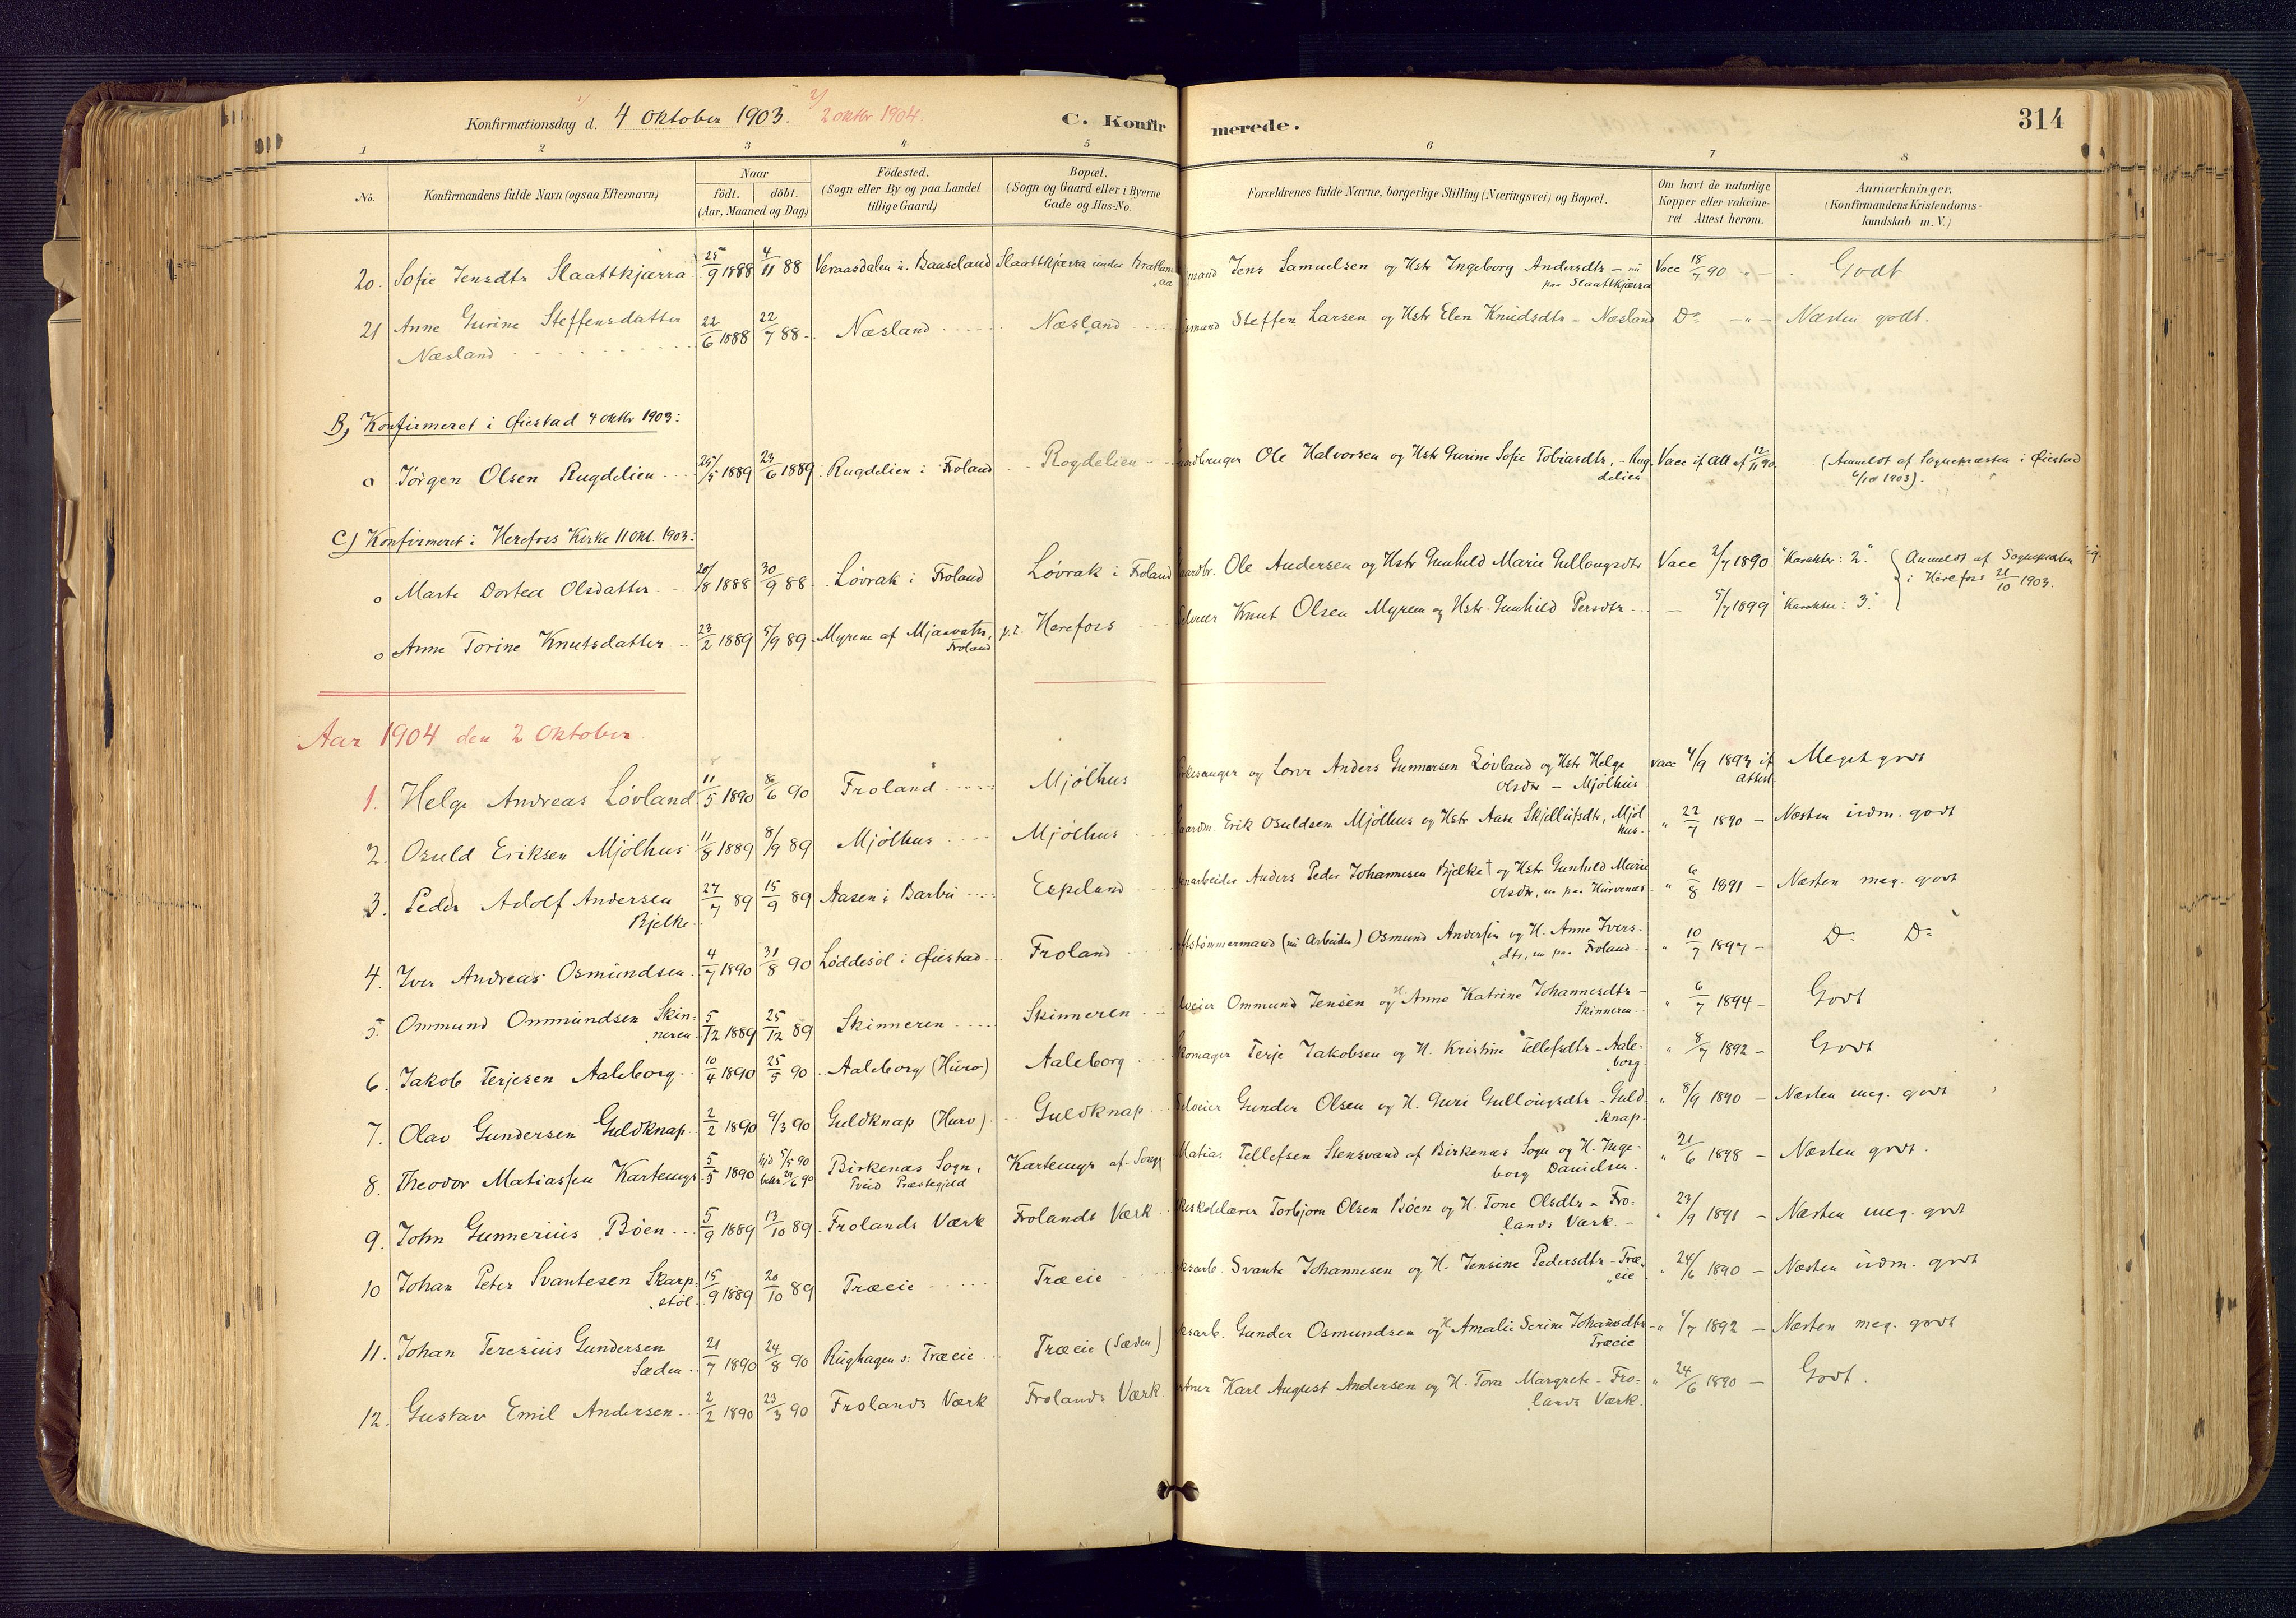 Konfirmationsdag d. 4 Oktober 1903. 2 oktbr 1904.
C. Konfirmerede.
314
1 2 3 4 5 6 7 8
No.
Konfirmandens fulde Navn (ogsaa Efternavn)
Naar
födt. döbt.
(Aar, Maaned og Dag)
Födested.
(Sogn eller By og paa Landet
tillige Gaard)
Bopæl.
(Sogn og Gaard eller i Byerne
Gade og Hus-No.
Forældrenes fulde Navne, borgerlige Stilling (Næringsvei) og Bopæl.
Om havt de naturlige
Kopper eller vakcine-
ret Attest herom.
Anmærkninger,
(Konfirmandens Kristendoms-
kundskab m. V.)
20. Sofie Jensdtr Slaattkjærra 25/9 1888 4/11 88 Veraasdalen u. Baaseland Slaattkjærra under Bratland mand Jens Samuelsen og Hstr Ingeborg Andersdtr – nu Vacc 18/7 90 Godt
paa Slaattkjærra
21 Anne Gurine Steffensdatter 22/6 1888 22/7 88 Næsland Næsland smand Steffen Larsen og Hstr Elen Knudsdtr – Næsland Do Næsten godt.
Næsland
B, Konfirmeret i Øiestad 4 oktbr 1903:
o Jörgen Olsen Rugdelien 25/5 1889 23/6 1889 Rugdelien i Froland Rogdelien ardbruger Ole Halvorsen og Hstr Gurine Sofie Tobiasdtr, – Rug Vacc if att af 12/11 90. (Anmeldt af Sognepræsten i Øiestad
delien 6/10 1903).
C) Konfirmeret i Herefoss Kirke 11 Okt. 1903:
o Marte Dortea Olsdatter 20/8 1888 30/9 88 Løvrak i Froland Løvrak i Froland aardbr. Ole Andersen og Hstr Gunhild Marie Gullougsdtr Vacc 2/7 1890 "Karakter: 2." Anmeldt af Sognepræsten
i Herefoss 21/10 1903.
o Anne Torine Knutsdatter 23/2 1889 5/9 89 Myrene af Mjaavatn, p.t. Herefoss elveier Knut Olsen Myren og Hstr. Gunhild Persdtr – 5/7 1899 "Karakter: 3."
Froland
Aar 1904 den 2 Oktober
1. Helge Andreas Løvland 11/5 1890 8/6 90 Froland Mjölhus rkesanger og Lærer Anders Gunnarsen Løvland og Hstr Helge vacc 4/9 1893 if Meget godt
Olsdtr – Mjölhus attest
2. Osuld Eriksen Mjölhus 11/8 1889 8/9 89 Mjölhus Mjölhus aardm. Erik Osuldsen Mjölhus og Hstr Aase Skjellulfsdtr, Mjöl " 22/7 1890 – Næsten udm. godt
hus
3. Peder Adolf Andersen 27/7 89 15/9 89 Aasen i Barbu Espeland narbeider Anders Peder Johannesen Bjelke† og Hstr Gunhild Marie " 6/8 1891 – Næsten meg. godt
Bjelke Olsdtr, nu paa Hurvenæs
4. Iver Andreas Osmundsen 4/7 1890 31/8 90 Løddesøl i Øiestad Froland ftstømmermand (nu Arbeider) Osmund Andersen og H. Anne Ivers- " 10/7 1897 – Do Do
dtr, nu paa Froland
5. Ommund Ommundsen Skin- 5/12 1889 25/12 89 Skinneren Skinneren lveier Ommund Jensen og H. Anne Katrine Johannesdtr – " 6/7 1894 – Godt
neren Skinneren
6. Jakob Terjesen Aaleborg 10/4 1890 25/5 90 Aaleborg (Huro) Aaleborg komager Terje Jakobsen og H. Kristine Tellefsdtr – Aale- " 8/7 1892 – Godt
borg
7. Olav Gundersen Guldknap 2/2 1890 9/3 90 Guldknap (Huro) Guldknap elveier Gunder Olsen og H. Guri Gullougsdtr – Guld " 8/9 1890 – Næsten meg. godt
knap
8. Theodor Matiassen Kartemyr 5/5 1890 5/5 90 Birkenæs Sogn, Kartemyr af Songe Matias Tellefsen Stensvand af Birkenæs Sogn og H. Inge- " 21/6 1898 – Næsten godt.
29/6 90 Tveid Præstegjeld borg Danielsen
9. John Gunnerius Böen 5/9 1889 13/10 89 Frolands Værk Frolands Værk keskolelærer Torbjørn Olsen Böen og H. Tone Olsdtr – Fro- " 23/9 1891 – Næsten meg. godt
lands Værk. –
10 Johan Peter Svantesen Skarp- 15/9 1889 20/10 89 Træeie Træeie ksarb. Svante Johannesen og H. Jensine Pedersdtr – Træ- " 24/6 1890 – Næsten udm. godt
støl eie
11. Johan Teresius Gundersen 21/7 1890 24/8 90 Rughagen v: Træeie Træeie (Sæden) ksarb. Gunder Osmundsen og H. Amalie Serine Johansdtr – " 1/7 1892 – Næsten meg. godt
Sæden Træeie
12. Gustav Emil Andersen 2/2 1890 23/3 90 Frolands Værk Frolands Værk rtner Karl August Andersen og H. Tora Margrete – Fro- " 24/6 1890 – Godt.
lands Værk